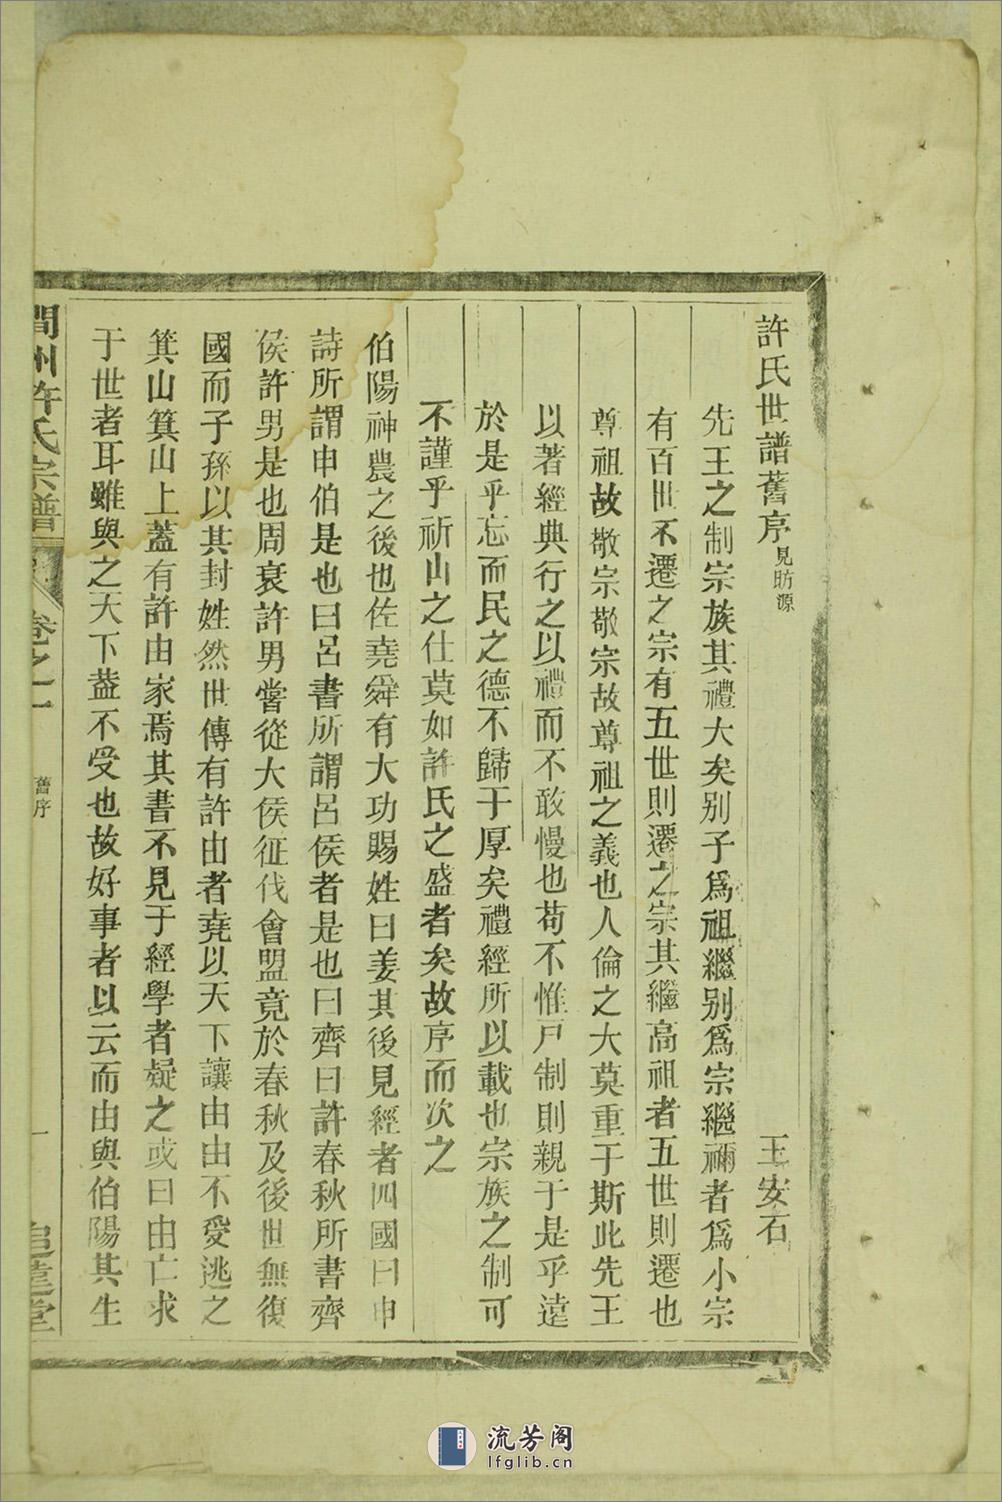 許氏世譜舊序 見昉源 王安石
先王之制宗族其禮大矣別子爲祖繼別爲宗繼禰者爲小宗
有百世不遷之宗有五世則遷之宗其繼高祖者五世則遷也
尊祖故敬宗敬宗故尊祖之義也人倫之大莫重于斯此先王
以著經典行之以禮而不敢慢也苟不惟戸制則親于是乎遠
於是乎忘而民之德不歸于厚矣禮經所以載也宗族之制可
不謹乎祈山之仕莫如許氏之盛者矣故序而次之
伯陽神農之後也佐堯舜有大功賜姓曰姜其後見經者四國曰申
詩所謂申伯是也曰呂書所謂呂侯者是也曰齊曰許春秋所書齊
侯許男是也周衰許男嘗從大侯征伐會盟竟於春秋及後世無復
國而子孫以其封姓然世傳有許由者堯以天下讓由由不受逃之
箕山箕山上蓋有許由家焉其書不見于經學者疑之或曰由亡求
于世者耳雖與之天下蓋不受也故好事者以云而由與伯陽其生
澗州許氏宗譜 卷之一 舊序 一 追遠堂
流芳阁
lfglib.cn